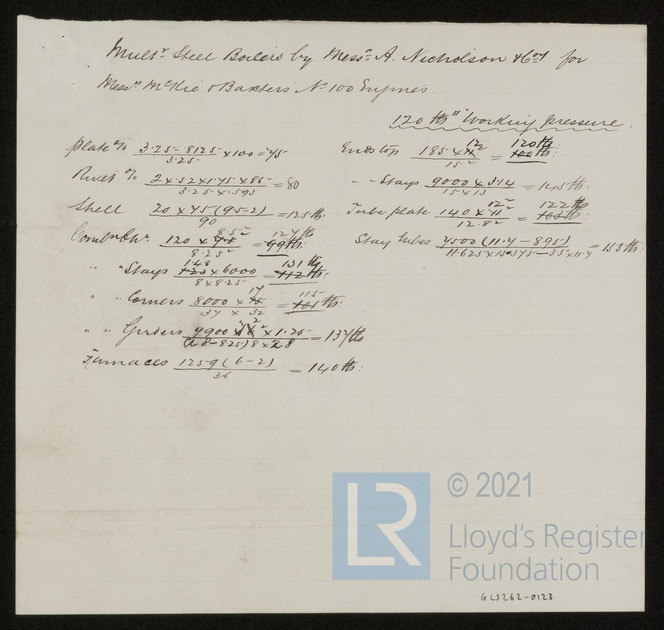 Multr Steel Boilers by Messrs A. Nicholson & Co for
Messrs McKie & Baxters No 100 Engines.
120 lbs Working pressure
plate % 3.25 - .8125 / 3.25 × 100 = 75
Rivet % 2 × .52 × 1.75 × 85 / 3.25 × .593 = 80
Shell 20 × 75 (9.5-2) / 90 = 125 lbs.
120 × 8.5² / 8.25² = 99 lbs. 127 lbs
" " Stays 1.48 × 6000 / 8 × 8.25 = 112 lbs. 131 lbs
" " Corners 8000 × 17 / 37 × 32 = 101 lbs. 115
" " Girders = 137 lbs
Furnaces 1259 (6-2) / 36 = 140 lbs.
Ends top 185 × 12 / 15² = 100 lbs. 120 lbs.
" " Stays 9000 × 3.14 / 15 × 13 = 145 lbs.
Tube plate 140 × 12² / 12.8² = 103 lbs. 122 lbs
Stay tubes 7500 (11.4 - 8.95) / = 153 lbs.
© 2021
LR
Lloyd's Register
Foundation
GLS262-0123